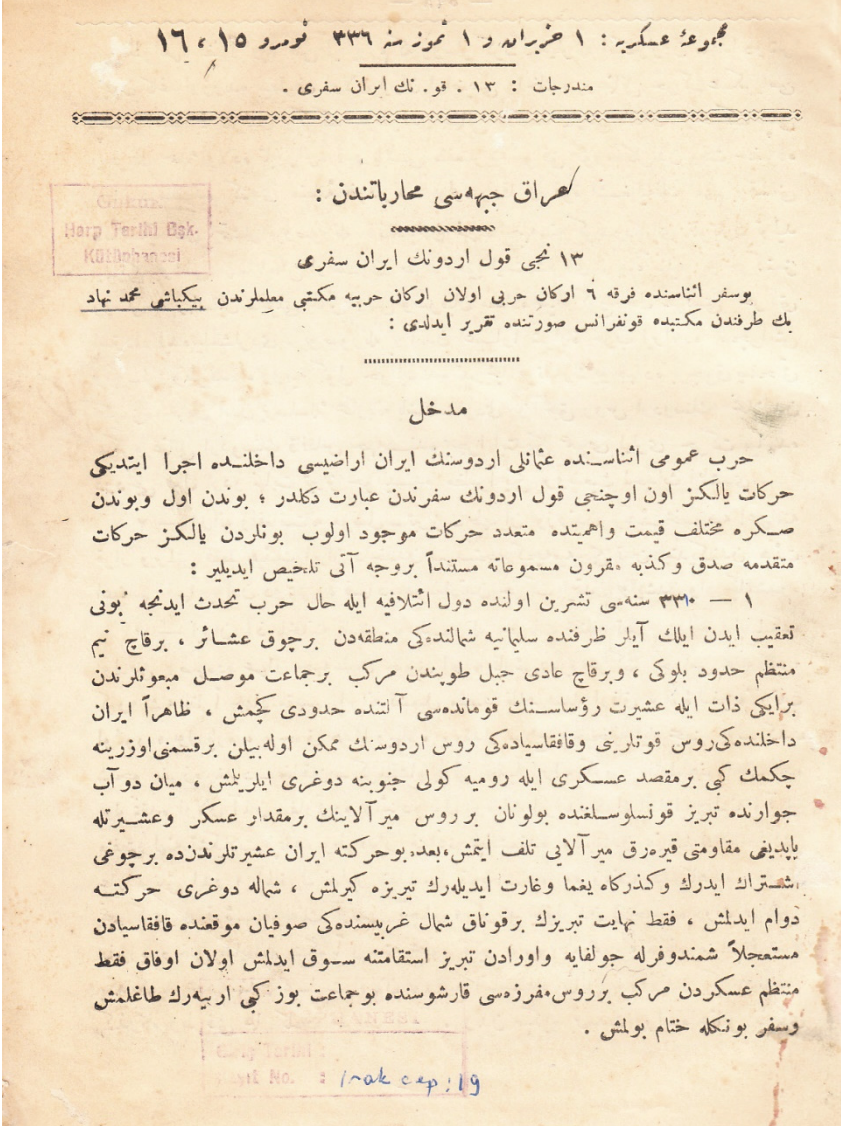 مجموعهٔ عسكریه : ١ حزیران و ١ تموز سنه ٣٣٦ نومرو ١٥ ، ١٦
مندرجات : ١٣ . قو . نك ایران سفری .
عراق جبهه‌سی محارباتندن :
Harp Tarihi Bşk.
Kütüphanesi
١٣ نجی قول اردونك ایران سفری
بوسفر اثناسنده فرقه ٦ اركان حربی اولان اركان حربیه مكتبی معلملرندن بیكباشی محمد نهاد
بك طرفندن مكتبده قونفرانس صورتنده تقریر ایدلدی :
مدخل
حرب عمومی اثناسـنده عثمانلی اردوسنك ایران اراضیسی داخلنـده اجرا ایتدیكی
حركات یالكز اون اوچنجی قول اردونك سفرندن عبارت دكلدر ؛ بوندن اول وبوندن
صـكره مختلف قیمت واهمیتده متعدد حركات موجود اولوب بونلردن یالكـز حركات
متقدمه صدق وكذبه مقرون مسموعاته مستنداً بروجه آتی تلخیص ایدیلیر :
١ — ٣٣٠ سنه‌سی تشرین اولنده دول ائتلافیه ایله حال حرب تحدث ایدنجه بونی
تعقیب ایدن ایلك آیلر ظرفنده سلیمانیه شمالنده‌كی منطقه‌دن برچوق عشـائر ، برقاچ نیم
منتظم حدود بلوكی ، وبرقاچ عادی جبل طوپندن مركب برجماعت موصـل مبعوثلرندن
برایكی ذات ایله عشیرت رؤساسـنك قوماندەسی آلتنده حدودی كچمش ، ظاهراً ایران
داخلنده‌كی روس قوتلرینی وقافقاسیاده‌كی روس اردوسنك ممكن اوله‌بیلن برقسمنی اوزرینه
چكمك كبی برمقصد عسـكری ایله رومیه كولی جنوبنه دوغری ایلریلمش ، میان دو آب
جوارنده تبریز قونسلوسـلغنده بولونان بر روس میرآلاینك برمقدار عسكر وعشـیرتله
یاپدیغی مقاومتی قیره‌رق میرآلایی تلف ایتمش، بعده بوحركته ایران عشیرتلرندن‌ده برچوغی
اشـتراك ایدرك وكذركاه یغما وغارت ایدیله‌رك تبریزه كیرلمش ، شماله دوغری حركتـه
دوام ایدلمش ، فقط نهایت تبریزك برقوناق شمال غربیسنده‌كی صوفیان موقعنده قافقاسیادن
مستعجلاً شمندوفرله جولفایه واورادن تبریز استقامتنه سـوق ایدلمش اولان اوفاق فقط
منتظم عسكردن مركب برروس مفرزه‌سی قارشوسنده بوجماعت بوز كبی اریيه‌رك طاغلمش
وسفر بونكله ختام بولمش .
Harp Tarihi
No. :
Irak cep: 19